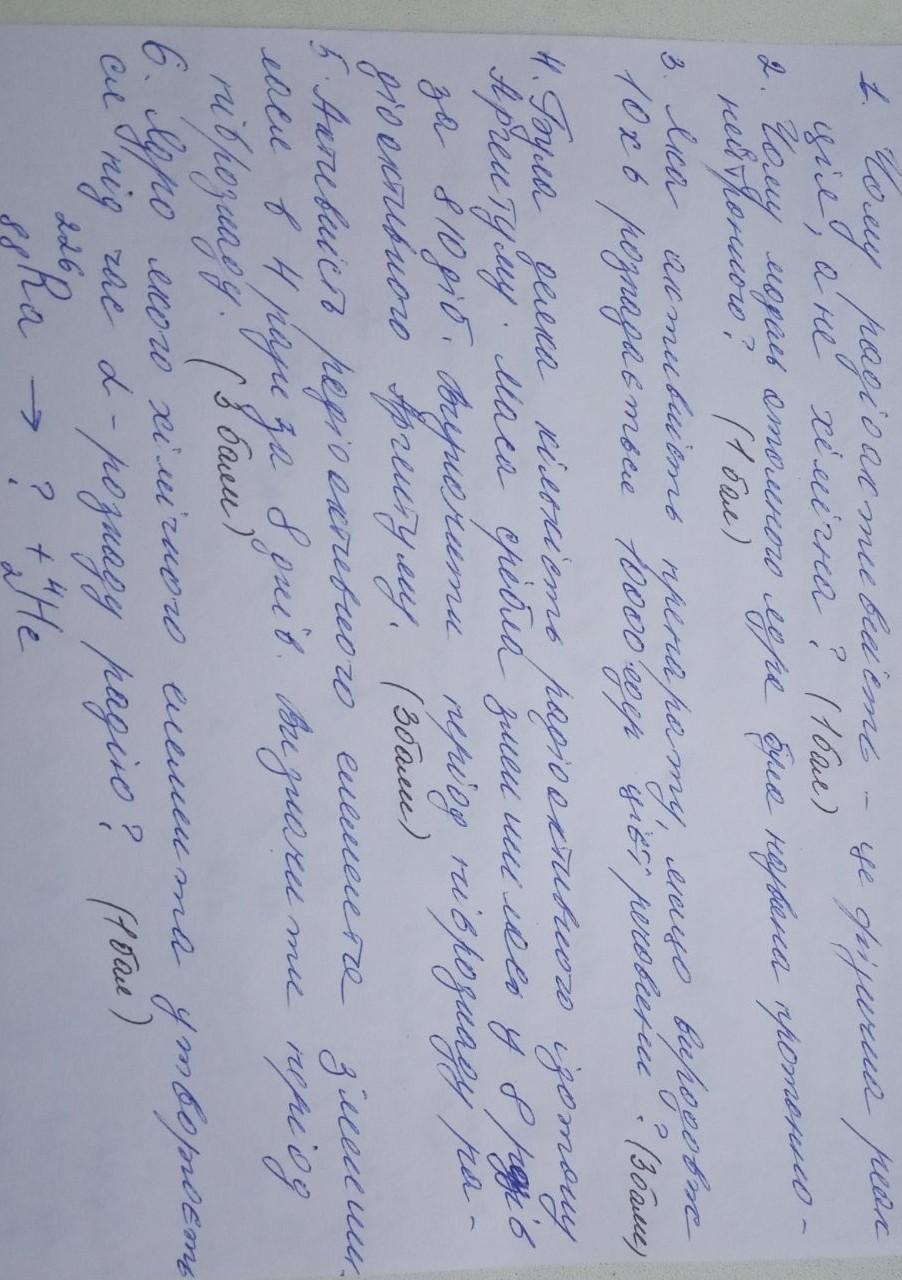 1. Чому радіоактивність – це фізична реак
ція, а не хімічна? (1 бал)
2. Чому модель атомного ядра була названа протонно-
нейтронною? (1 бал)
3. Яка активність препарату, якщо впродовж
10 хв розпадається 10000 ядер цієї речовини? (3 бали)
4. Була деяка кількість радіоактивного ізотопу
Аргентуму. Маса срібла зменшилась у 8 разів
за 810 діб. Визначити період піврозпаду ра-
діоактивного Аргентуму. (3 бали)
5. Активність радіоактивного елемента зменши-
лась в 4 рази за 8 днів. Визначити період
піврозпаду. (3 бали)
6. Ядро якого хімічного елемента утворюєть
ся під час α-розпаду радію? (1 бал)
²²⁶₈₈Ra → ? + ⁴₂He